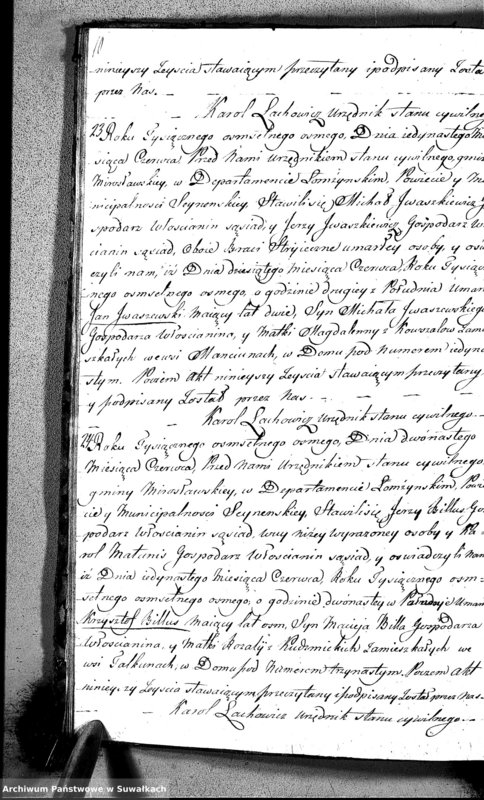 10
ninieyszy Zeyscia stawaiącym przeczytany i podpisany Zosta
przez Nas.
Karol Lachowicz Urzędnik stanu cywilne
23 Roku Tysiącznego osmsetnego osmego, Dnia iedynastego Mie
siąca Czerwca Przed Nami Urzędnikiem stanu cywilnego, gmin
Mirosławskiey, w Departamencie Łomżynskim, Powiecie y Mu
nicipalnosci Seynenskiey, Stawilisię Michał Jwaszkiewicz G
spodarz Włoscianin sąsiad, y Jerzy Jwaszkiewicz Gospodarz W
cianin sąsiad, oboie Braci Stryieczne umarłey osoby, y osia
czyli nam, iż Dnia dziesiątego miesiąca Czerwca, Roku Tysiącz
nego osmsetnego osmego, o godzinie drugiey z Południa Umar
Jan Jwaszewski maiący lat dwie, Syn Michała Jwaszewskiego
Gospodarza Włoscianina, y Matki Magdalenny z Kowszolow Zamie
szkałych we wsi Mancunach, w Domu pod Numerem iedyna
stym. Poczem Akt ninieyszy Zeyscia stawaiącym przeczytany
y podpisany Został przez Nas.
Karol Lachowicz Urzędnik stanu cywilnego.
24 Roku Tysiącznego osmsetnego osmego, Dnia dwónastego
Miesiąca Czerwca, Przed Nami Urzędnikiem stanu cywilnego
gminy Mirosławskiey, w Departamencie Łomżynskim, Powie
cie y Municypalnosci Seynenskiey, Stawilisię Jerzy Billus Gos
podarz Włoscianin sąsiad, wuy niżey wyrazoney osoby y Ka
rol Matunis Gospodarz Włoscianin sąsiad, y oswiadczyli Nam
iż Dnia iedynastego miesiąca Czerwca Roku Tysiącznego osm-
setnego osmsetnego osmego, o godzinie dwónastey w Południe Umar
Krzysztof Billus maiący lat osm, Syn Macieja Billa Gospodarza
Włoscianina, y Matki Rozalij z Kudzmickich Zamieszkałych we
wsi Talkunach, w Domu pod Numerem trzynastym. Poczem Akt
ninieyszy Zeyscia stawaiącym przeczytany i podpisany Został przez Nas.
Karol Lachowicz Urzędnik stanu cywilnego.
Archiwum Państwowe w Suwałkach